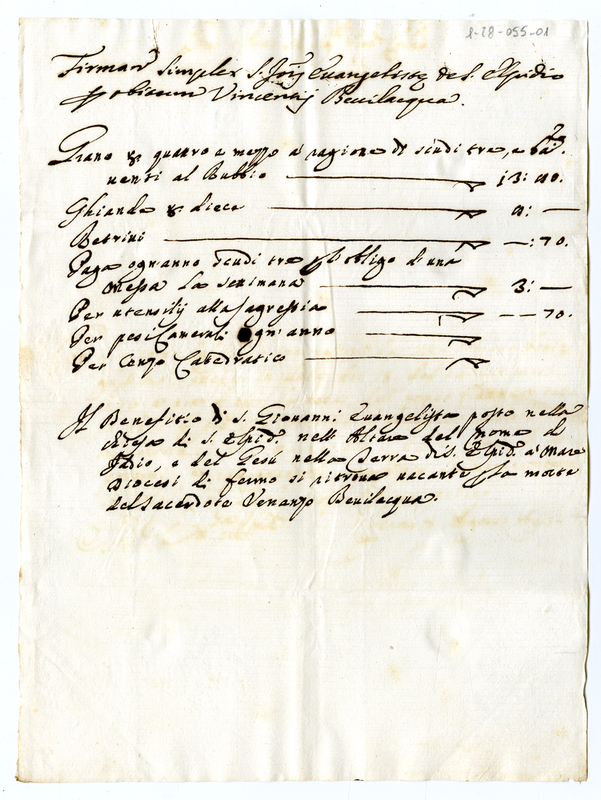 1-28-055-01
Firman' simplex S. Joñis Evangelistæ de S. Elpidio
p obitum Vincentij Bevilacqua.
Grano quatro e mezzo a ragione di scudi tre, e ba:
uenti al Rubbio 13: 40.
Ghiande diece :—
Betrini —: 70.
Paga ogn'anno scudi tre p obligo d'una
messa la settimana 3: —
Per utensilij alla Sagrestia — — 70.
Per pesi Camerali ogn'anno
Per Cenzo Catedratico
Il Benefitio di S. Giovanni Evangelista posto nella
Chiesa di S. Elpid.o nell'Altare del Nome di
Dadio, e del Gesù nella Terra di S. Elpid.o a Mare
Diocesi di fermo si ritroua uacante p la morte
del Sacerdote Venanzo Bevilacqua.